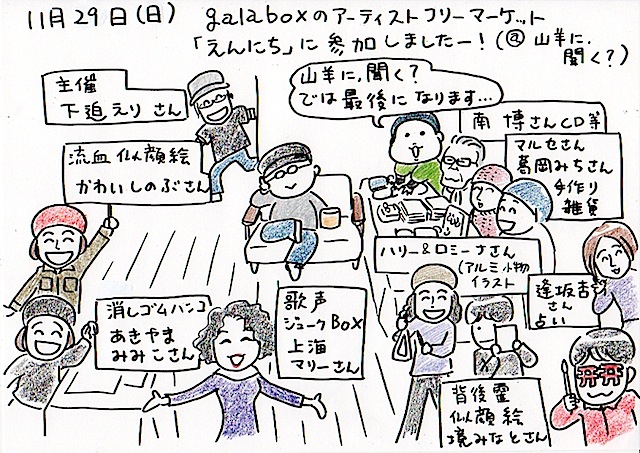 11月29日(日) galaboxのアーティストフリーマーケット
「えんにち」に参加しましたー!(@山羊に、
聞く?)
山羊に、聞く?
では最後になります…
主催
下追えりさん
南博さんCD等
流血似顔絵
かわいしのぶさん
マルセさん
葛岡みちさん
手作り
雑貨
ハリー&ロミーナさん
(アルミ小物
イラスト
逢坂杏さん
占い
消しゴムハンコ
あきやま
みみこさん
歌声
ジュークBox
上海
マリーさん
背後霊
似顔絵
境みなとさん